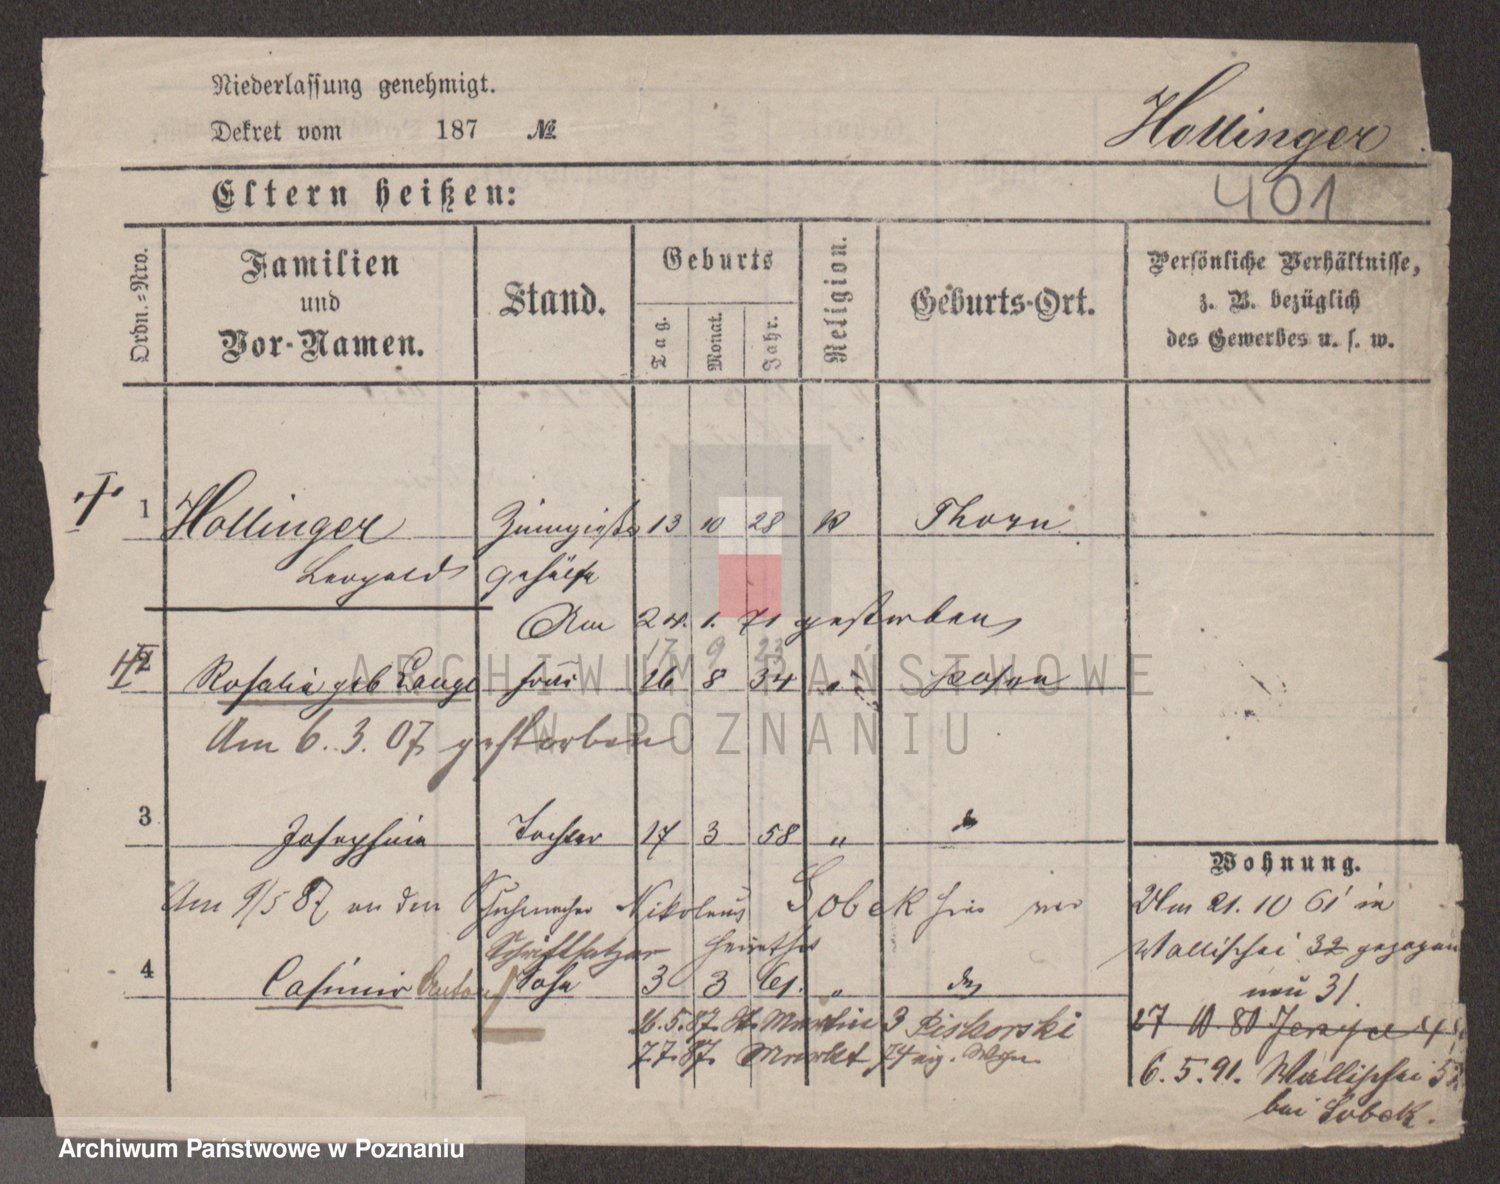 Niederlassung genehmigt.
Dekret vom 187 №
Hollinger
401
Eltern heißen:
Ordn.=Nro.
Familien und Vor-Namen.
Stand.
Geburts
Tag.
Monat.
Jahr.
Religion.
Geburts-Ort.
Persönliche Verhältnisse,
z. B. bezüglich
des Gewerbes u. s. w.
1 Hollinger Zinngießer 13 10 28 K Thorn
Leopold gehülfe
Am 24. 1. 71 gestorben
17 9 23
2 Rosalia geb Lange Frau 26 8 34 " Posen
Am 6. 3. 07 gestorben
3 Josephine Tochter 17 3 58 " do
Am 9/5 87 an den Schuhmacher Nikolaus Sobek hier
Schriftsetzer
4 Casimir Anton Sohn 3 3 61. " do
26.5.87. St. Martin 3 Piskorski
7.7.87. Markt 74
Wohnung.
Am 21. 10 61 in
Wallischei 32 gezogen
neu 31.
27 10 80
6. 5. 91. Wallischei
bei Sobek.
ARCHIWUM PAŃSTWOWE
W POZNANIU
Archiwum Państwowe w Poznaniu